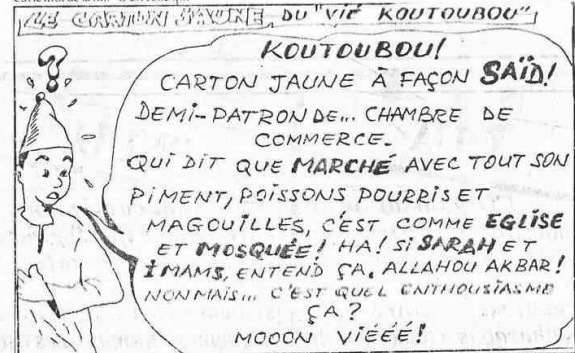 LE CARTON JAUNE, DU "VIÉ KOUTOUBOU"
KOUTOUBOU!
CARTON JAUNE À FAÇON SAÏD!
DEMI-PATRON DE... CHAMBRE DE
COMMERCE.
QUI DIT QUE MARCHÉ AVEC TOUT SON
PIMENT, POISSONS POURRIS ET
MAGOUILLES, C'EST COMME EGLISE
ET MOSQUÉE! HA! SI SARAH ET
IMAMS, ENTEND ÇA. ALLAHOU AKBAR!
NON MAIS... C'EST QUEL ENTHOUSIASME
ÇA?
MOOON VIÉÉÉ!
?